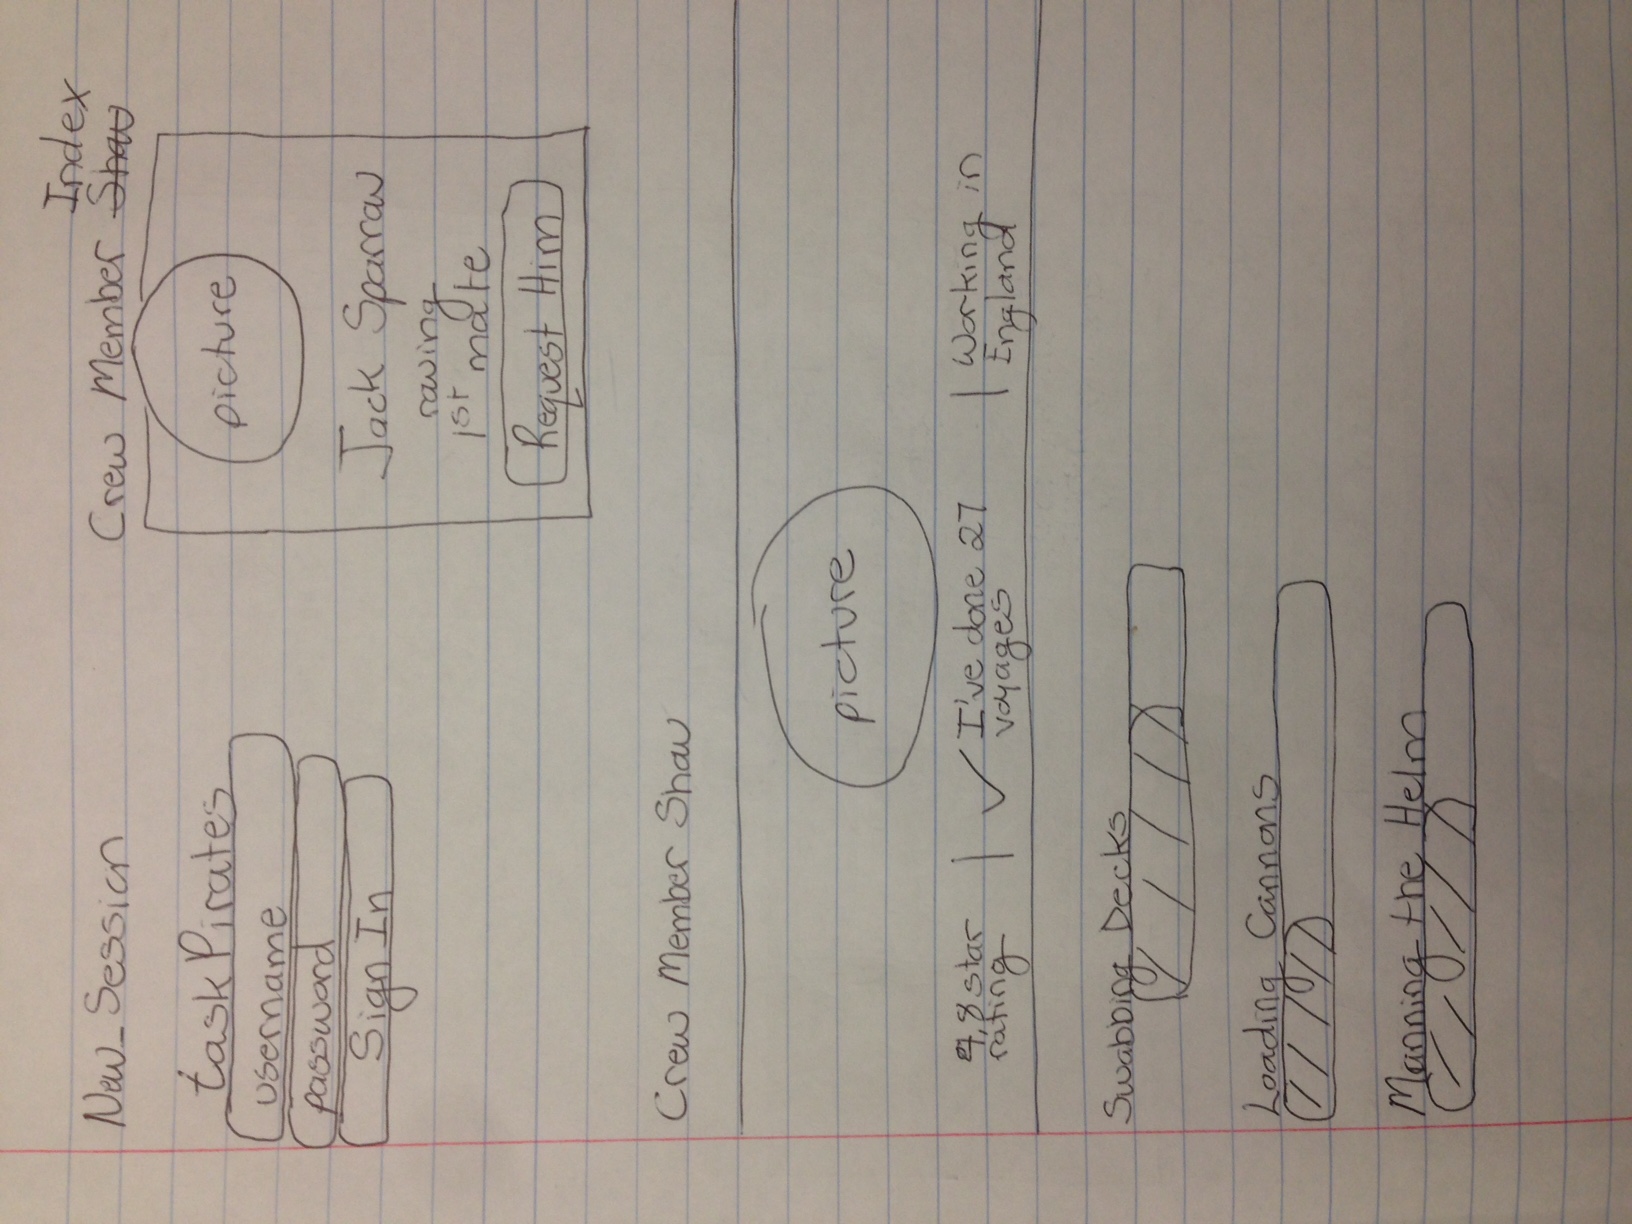 New_Session
taskPirates
username
password
Sign In
Index
Crew Member Show
picture
Jack Sparrow
rowing
1st mate
Request Him
Crew Member Show
picture
4,8 star
rating
I've done 27
voyages
Working in
England
Swabbing Decks
Loading Cannons
Manning the Helm